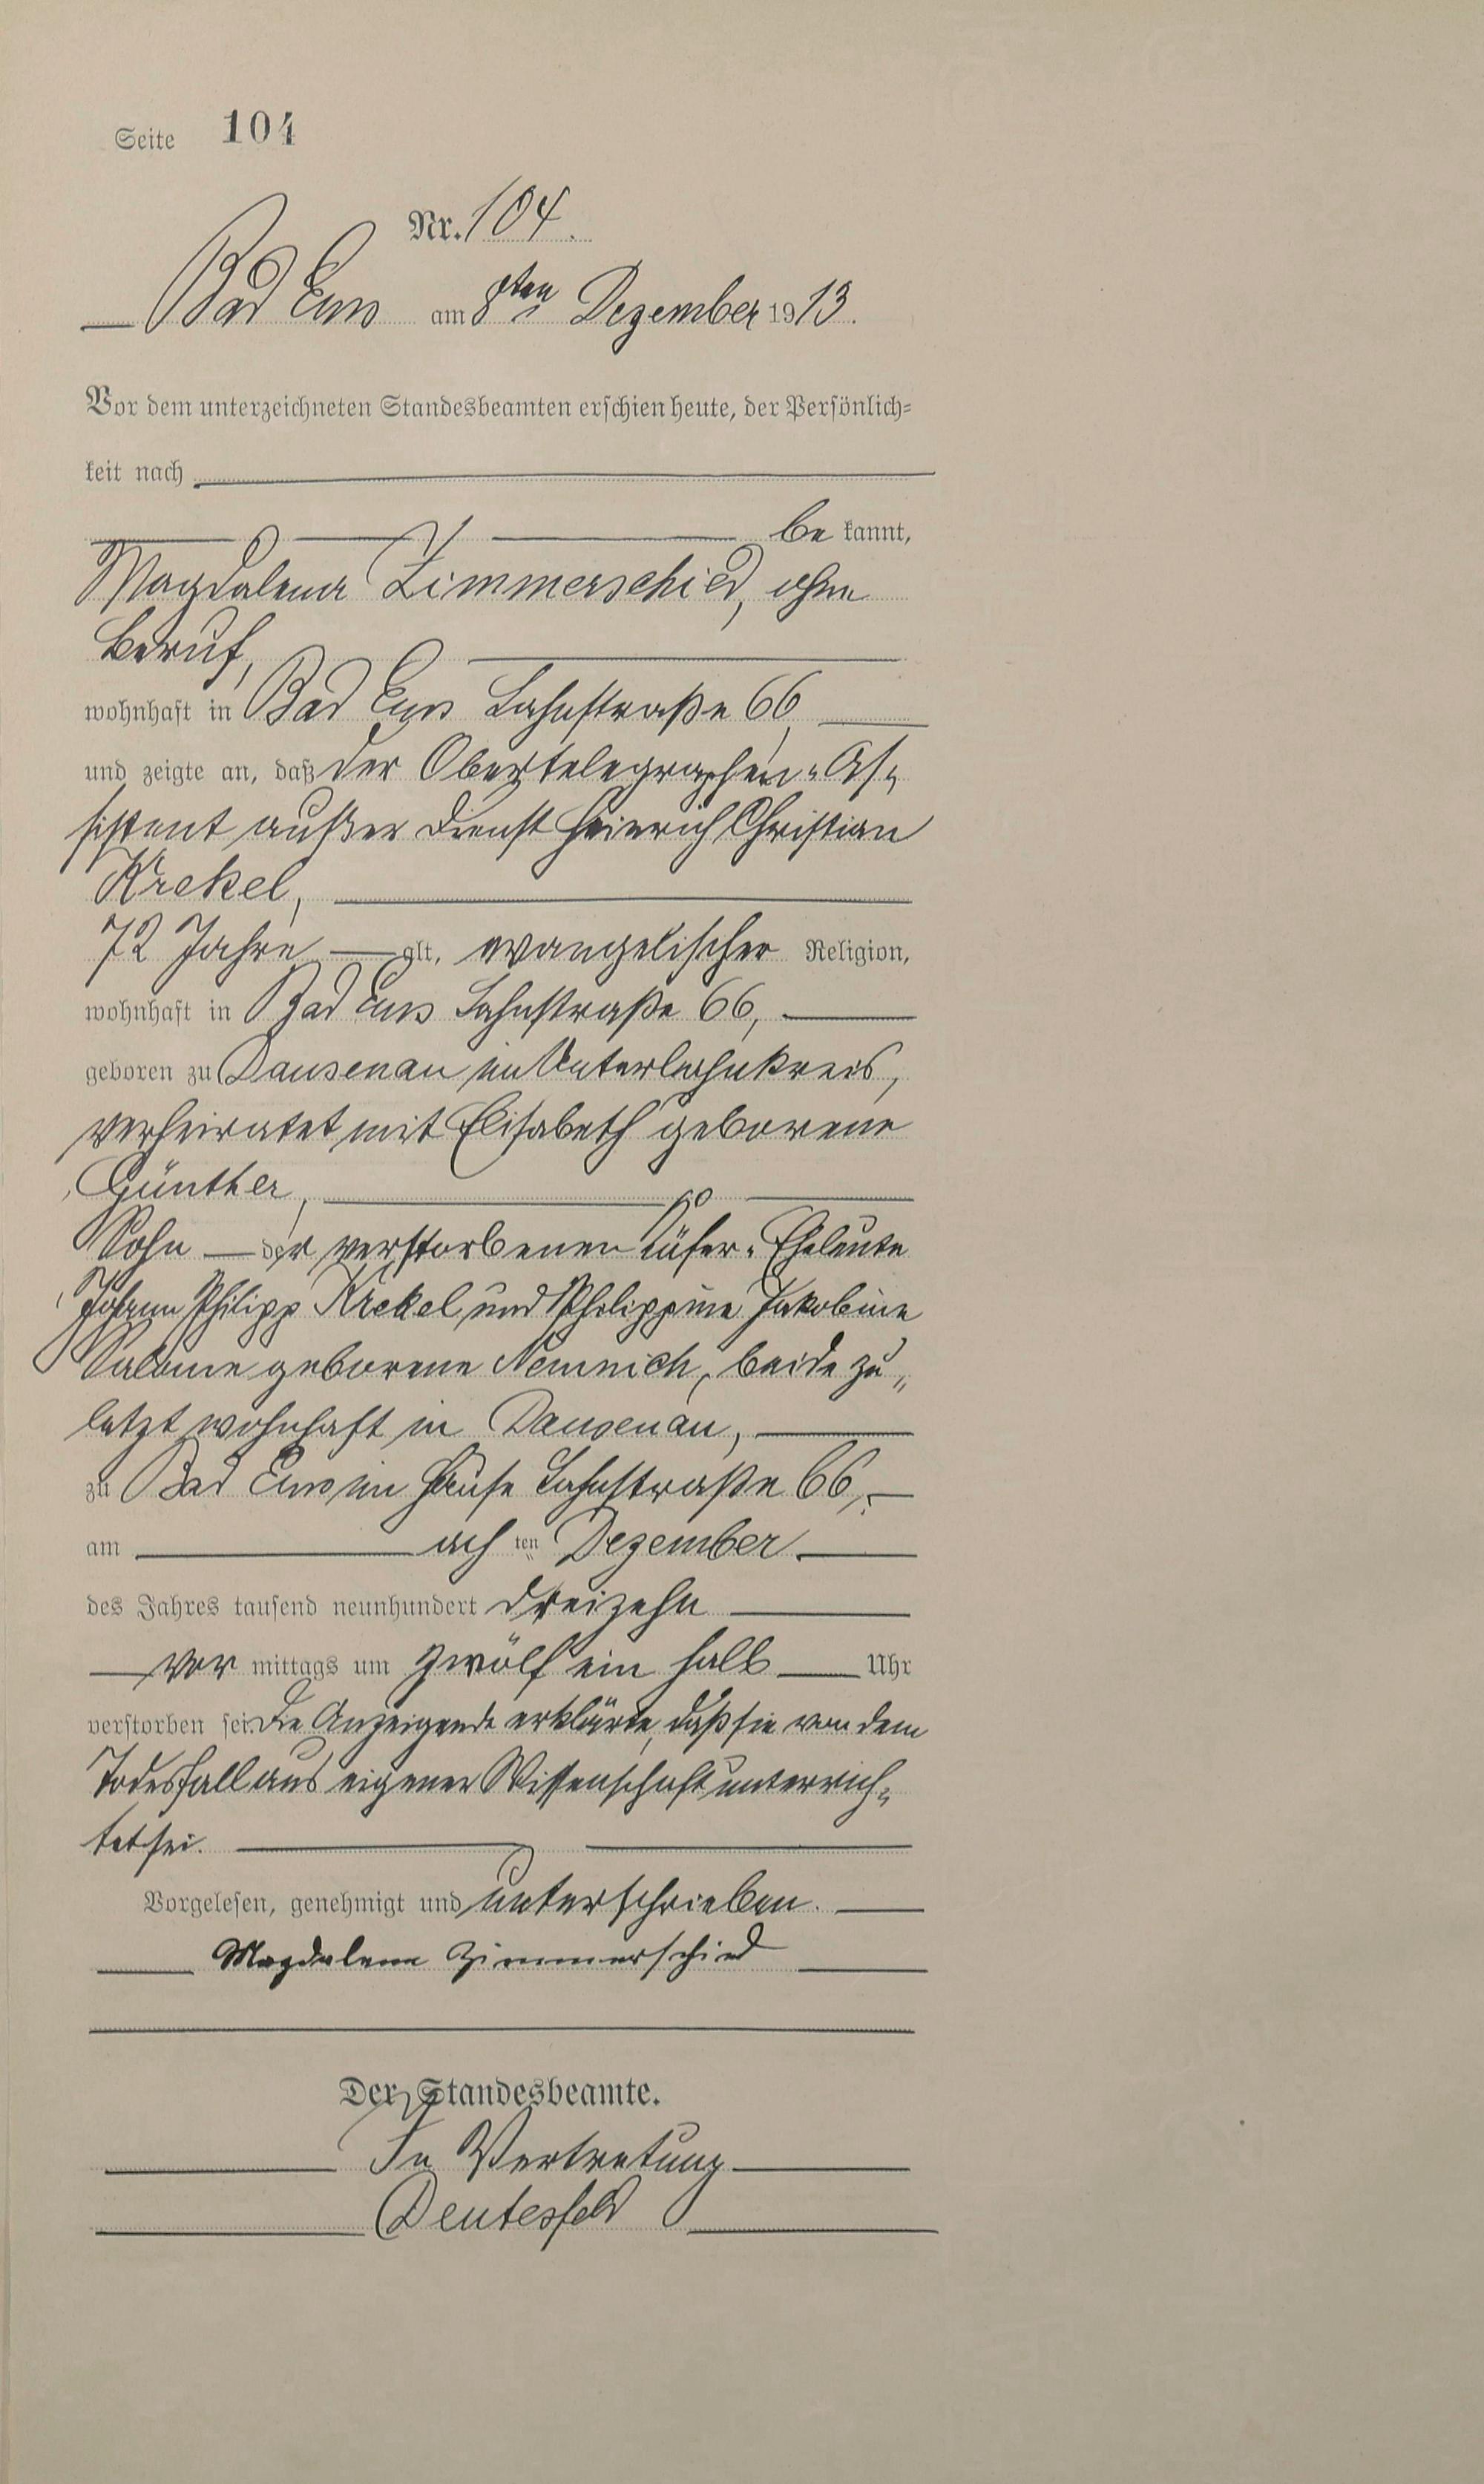 Seite 104
Nr. 104.
Bad Ems am 8ten Dezember 1913.
Vor dem unterzeichneten Standesbeamten erschien heute, der Persönlich=
keit nach
be kannt,
Magdalena Zimmerschied, ohne
Beruf,
wohnhaft in Bad Ems Lahnstraße 66
und zeigte an, daß der Obertelegraphen-As-
sistent außer Dienst Heinrich Christian
Krekel,
72 Jahre alt, evangelischer Religion,
wohnhaft in Bad Ems Lahnstraße 66,
geboren zu Dausenau im Unterlahnkreis,
verheiratet mit Elisabeth geborene
Günther,
Sohn der verstorbenen Küfer-Eheleute
Johann Philipp Krekel und Philippine Jakobine
Salome geborene Nemnich, beide zu„
letzt wohnhaft in Dausenau,
zu Bad Ems im Hause Lahnstraße 66,
am ach ten Dezember
des Jahres tausend neunhundert dreizehn
vor mittags um zwölf ein halb Uhr
verstorben sei. Die Anzeigende erklärte, daß sie von dem
Todesfall aus eigener Wissenschaft unterrich-
tet sei.
Vorgelesen, genehmigt und unterschrieben.
Magdalena Zimmerschied
Der Standesbeamte.
In Vertretung
Deutesfeld